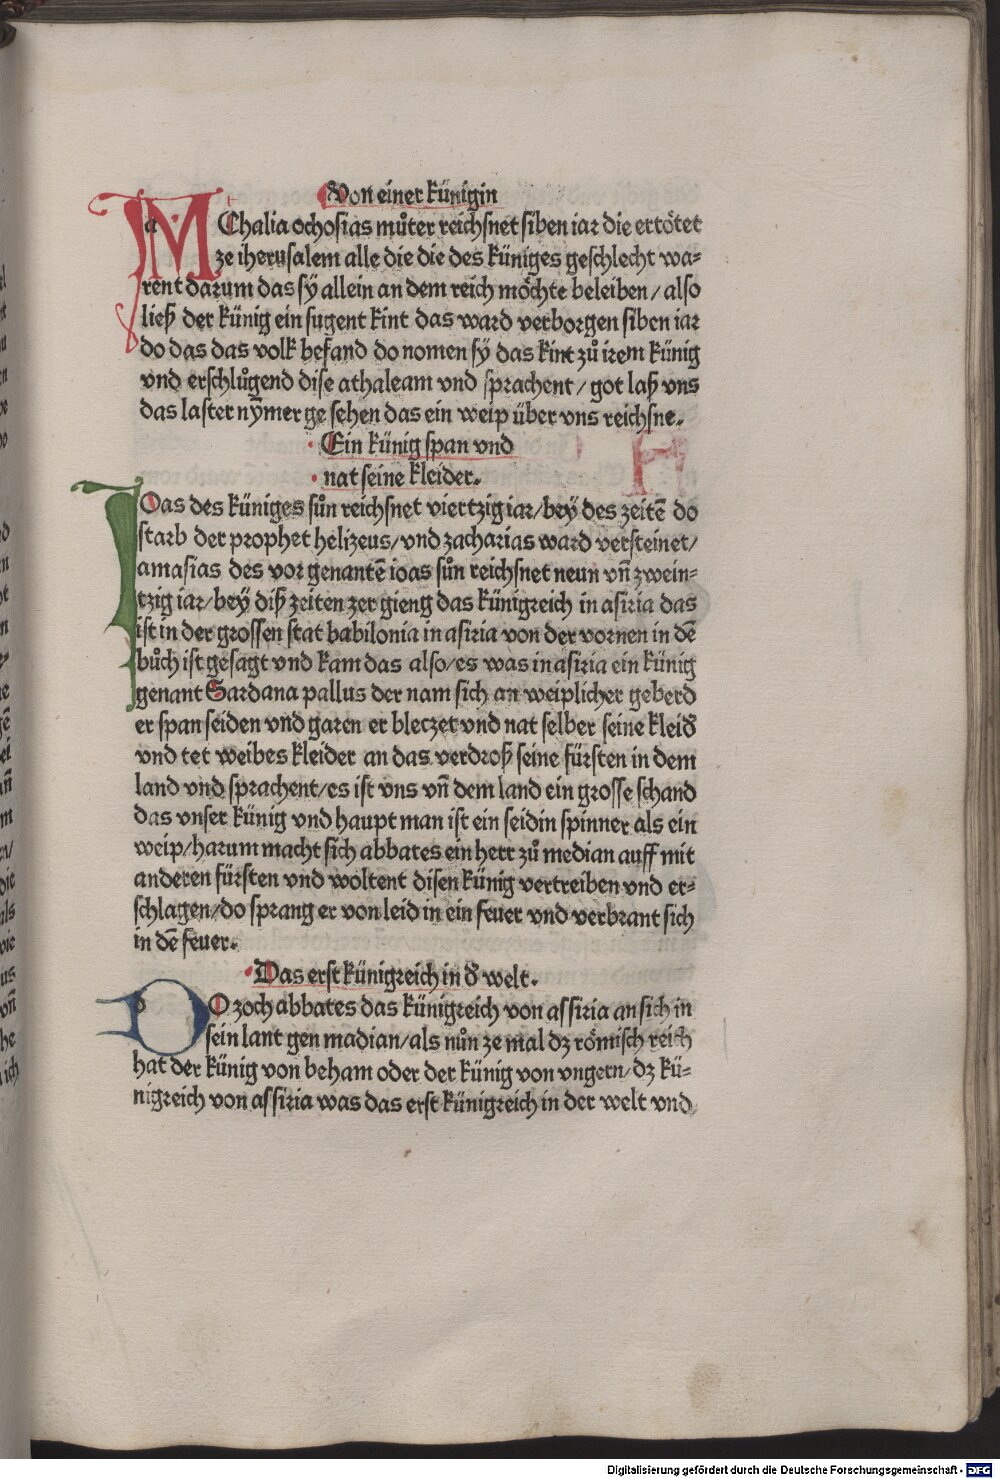 Von einer künigin
a M Chalia ochosias můter reichsnet siben iar die ertötet
ze iherusalem alle die die des küniges geschlecht wa-
rent darum das sÿ allein an dem reich möchte beleiben/ also
ließ der künig ein sugent kint das ward verborgen siben iar
do das das volk befand do nomen sÿ das kint zů irem künig
vnd erschlůgend dise athaleam vnd sprachent/ got laß vns
das laster nÿmer ge sehen das ein weip über vns reichsne.
Ein künig span vnd
nat seine kleider.
IOas des küniges sůn reichsnet viertzig iar/ beÿ des zeitē do
starb der prophet helizeus/ vnd zacharias ward versteinet/
amasias des vor genantē ioas sůn reichsnet neun vn̄ zwein-
tzig iar/ beÿ diß zeiten zer gieng das künigreich in asiria das
ist in der grossen stat babilonia in asiria von der vornen in dē
bůch ist gesagt vnd kam das also/ es was in asiria ein künig
genant Sardana pallus der nam sich an weiplicher geberd
er span seiden vnd garen er bleczet vnd nat selber seine kleid̛
vnd tet weibes kleider an das verdroß seine fürsten in dem
land vnd sprachent/ es ist vns vn̄ dem land ein grosse schand
das vnser künig vnd haupt man ist ein seidin spinner als ein
weip/ harum macht sich abbates ein herr zů median auff mit
anderen fürsten vnd woltent disen künig vertreiben vnd er-
schlagen/ do sprang er von leid in ein feuer vnd verbrant sich
in dē feuer.
Das erst künigreich in d̛ welt.
DO zoch abbates das künigreich von assiria an sich in
sein lant gen madian/ als nůn ze mal dz römisch reich
hat der künig von beham oder der künig von vngern/ dz kü-
nigreich von assiria was das erst künigreich in der welt vnd
Digitalisierung gefördert durch die Deutsche Forschungsgemeinschaft - DFG